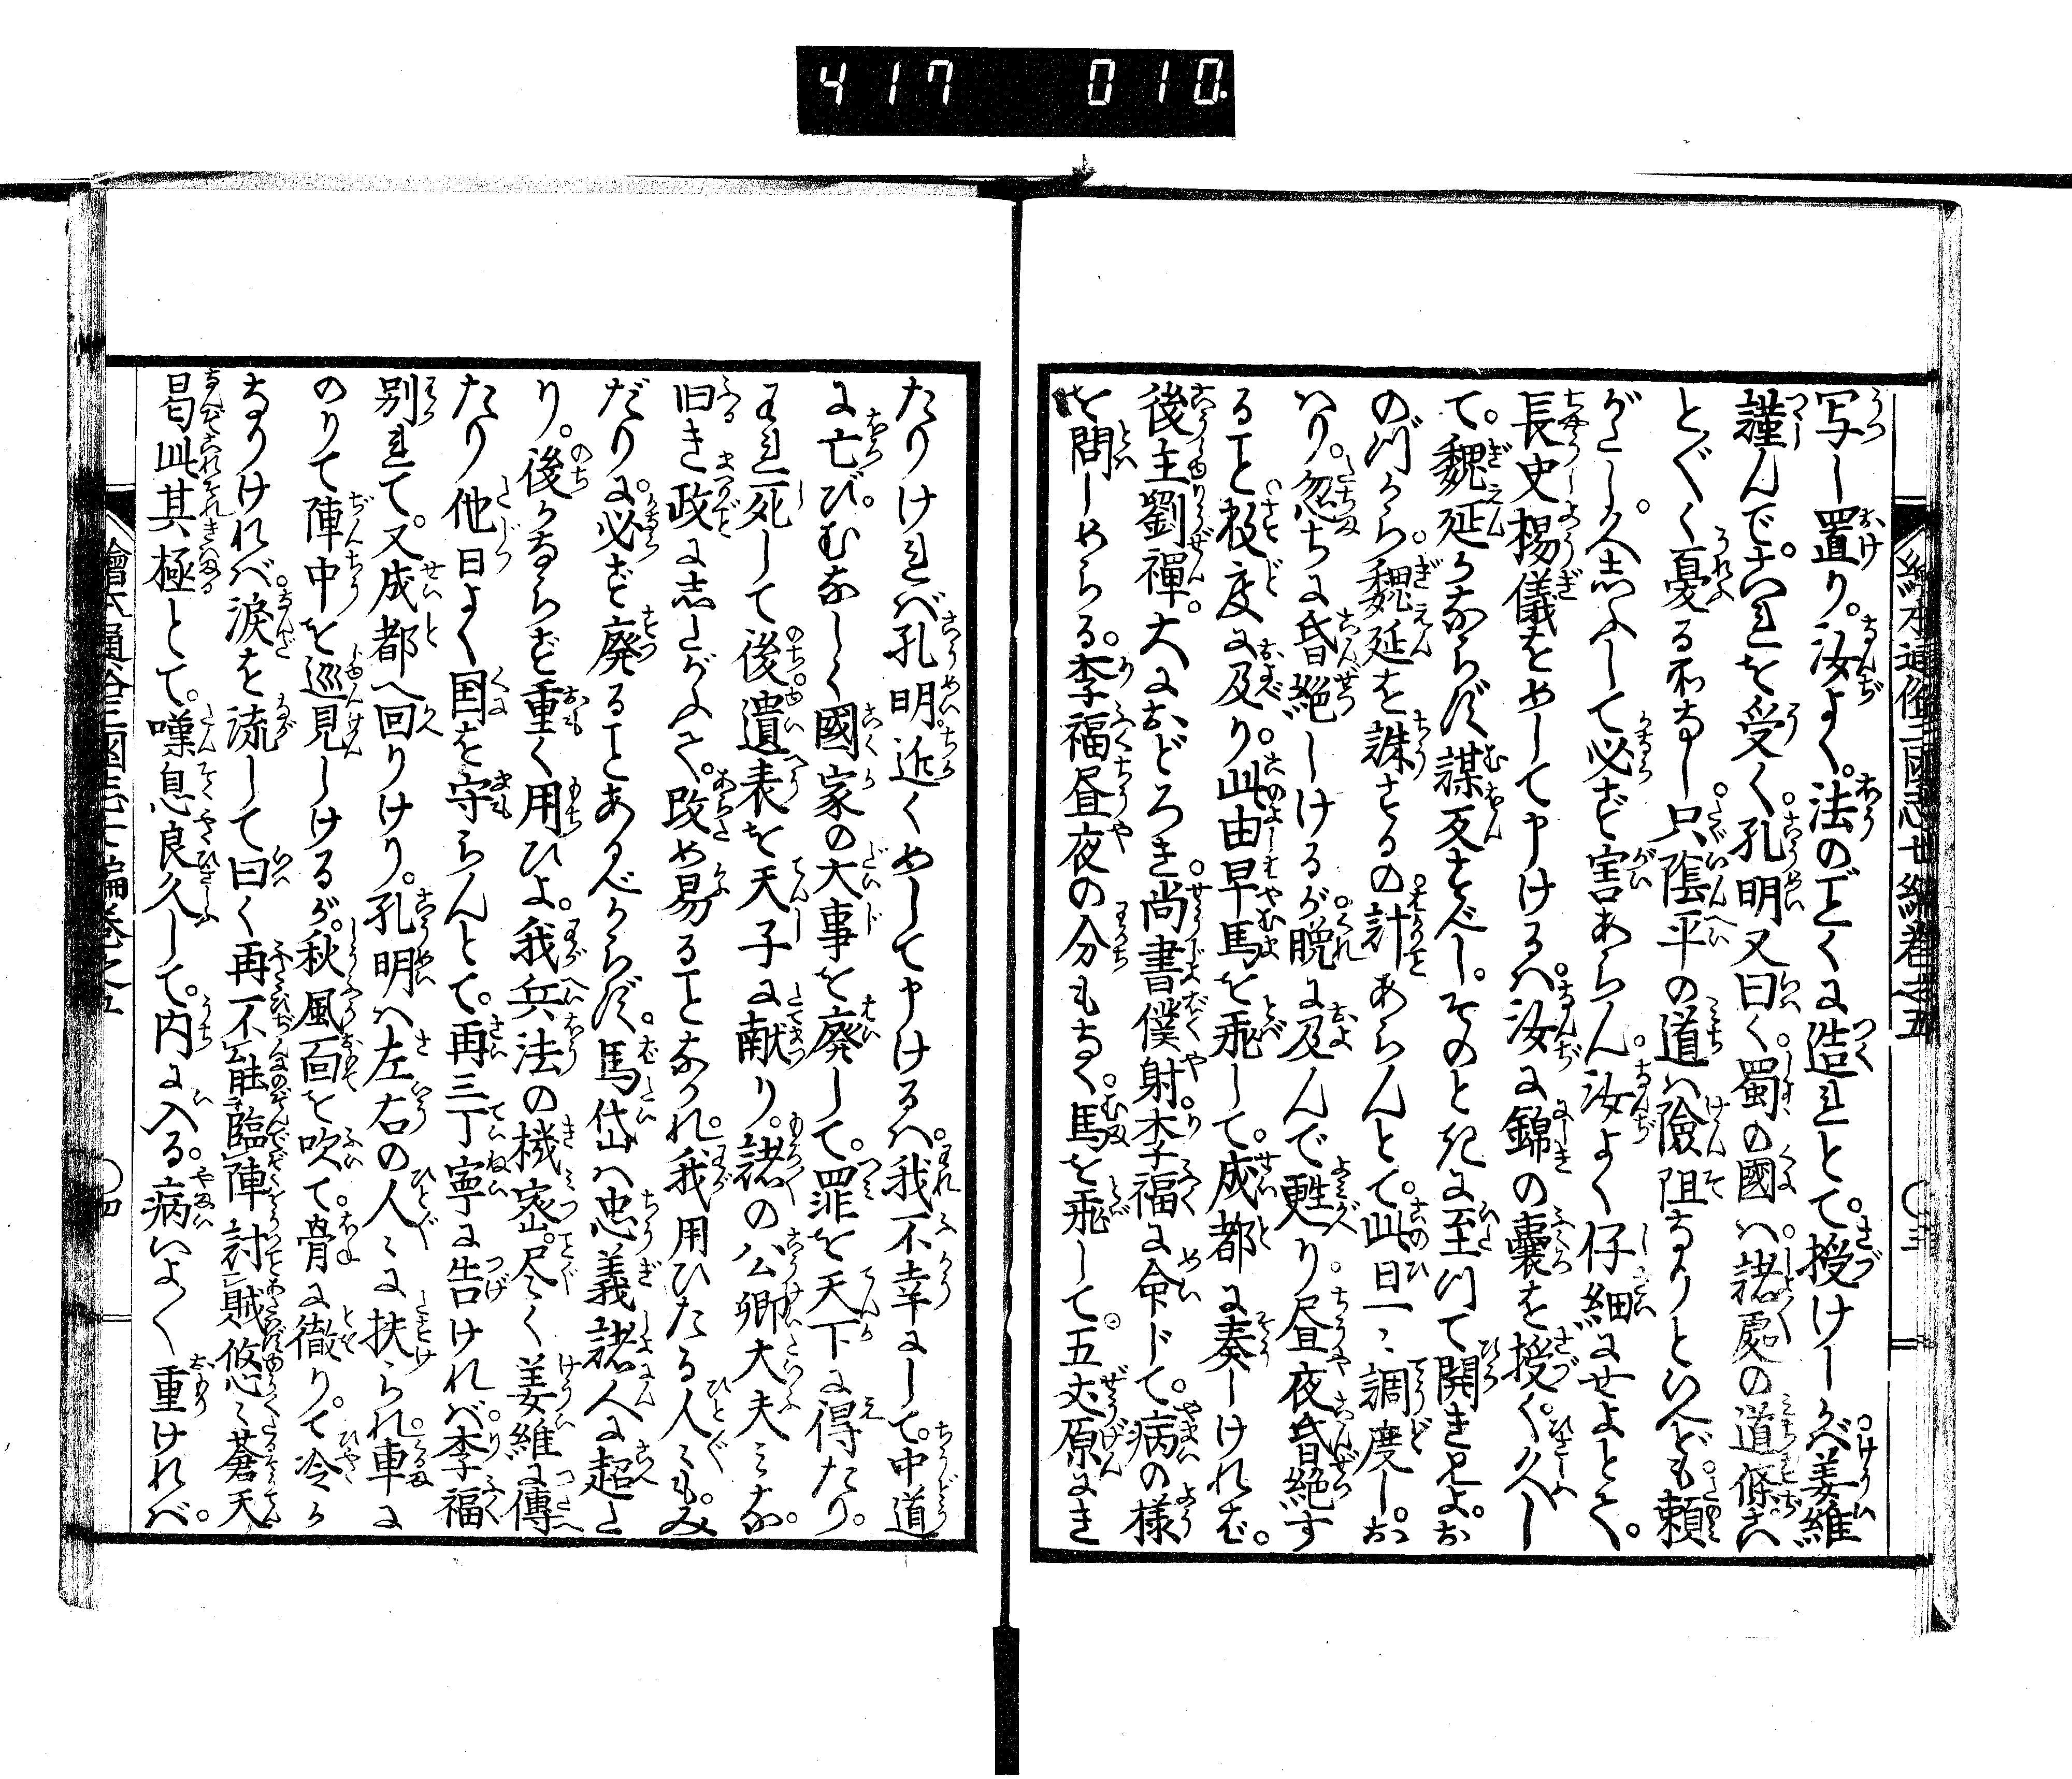 417 010.
繪本通俗三國志七編巻之五
〇三
写し置り。汝よく。法のごとくに造れとて。授けしかば姜維
謹んで。これを受く。孔明又曰く。蜀の國は。諸處の道條さへ
とく〲く憂る和なし。只陰平の道は険阻なりといへども。頼
がたし。久ふして必ず害あらん。汝よく仔細にせよとて。
長史楊儀をめして申けるは。汝に錦の囊を授く。久し
て。魏延かならず謀反すべし。そのときに至つて開き見よ。お
のづから。魏延を誅するの計。あらんとて。此日一々調度し。お
はり。忽ちに昏絶しけるが。晩に及んで甦り。昼夜昏絶す
ること数度に及び。此由早馬を飛して。成都に奏しければ。
後主劉禪。大におどろき。尚書僕射。李福に命じて。病の様
を問しめらる。李福昼夜の分もなく。馬を飛して。五丈原にき
たりければ。孔明近くめして申けるは。我不幸にして。中道
に亡び。むなしく國家の大事を廃して。罪を天下に得たり。
われ死して後。遺表を天子に献り。諸の公卿大夫みな。
旧き政にしたがふて。改め易ることなかれ。我用ひたる人々も。み
だりに。必ず廃ることあるべからず。馬岱は忠義諸人に超た
り。後かならず重く用ひよ。我兵法の機密。尽く姜維に傳
たり他日よく国を守らんとて。再三丁寧に告ければ。李福
別れて。又成都へ回りけり。孔明は左右の人々に扶られ。車に
のりて陣中を巡見しけるが。秋風面を吹て。骨に徹り。て冷か
なりければ。涙を流して曰く再不㆑能㆓臨㆑陣討㆒㆑賊悠々蒼天
曷此其極とて。嘆息良久して。内に入る。病いよ〱重ければ。
繪本通俗三國志七編巻之五
〇四